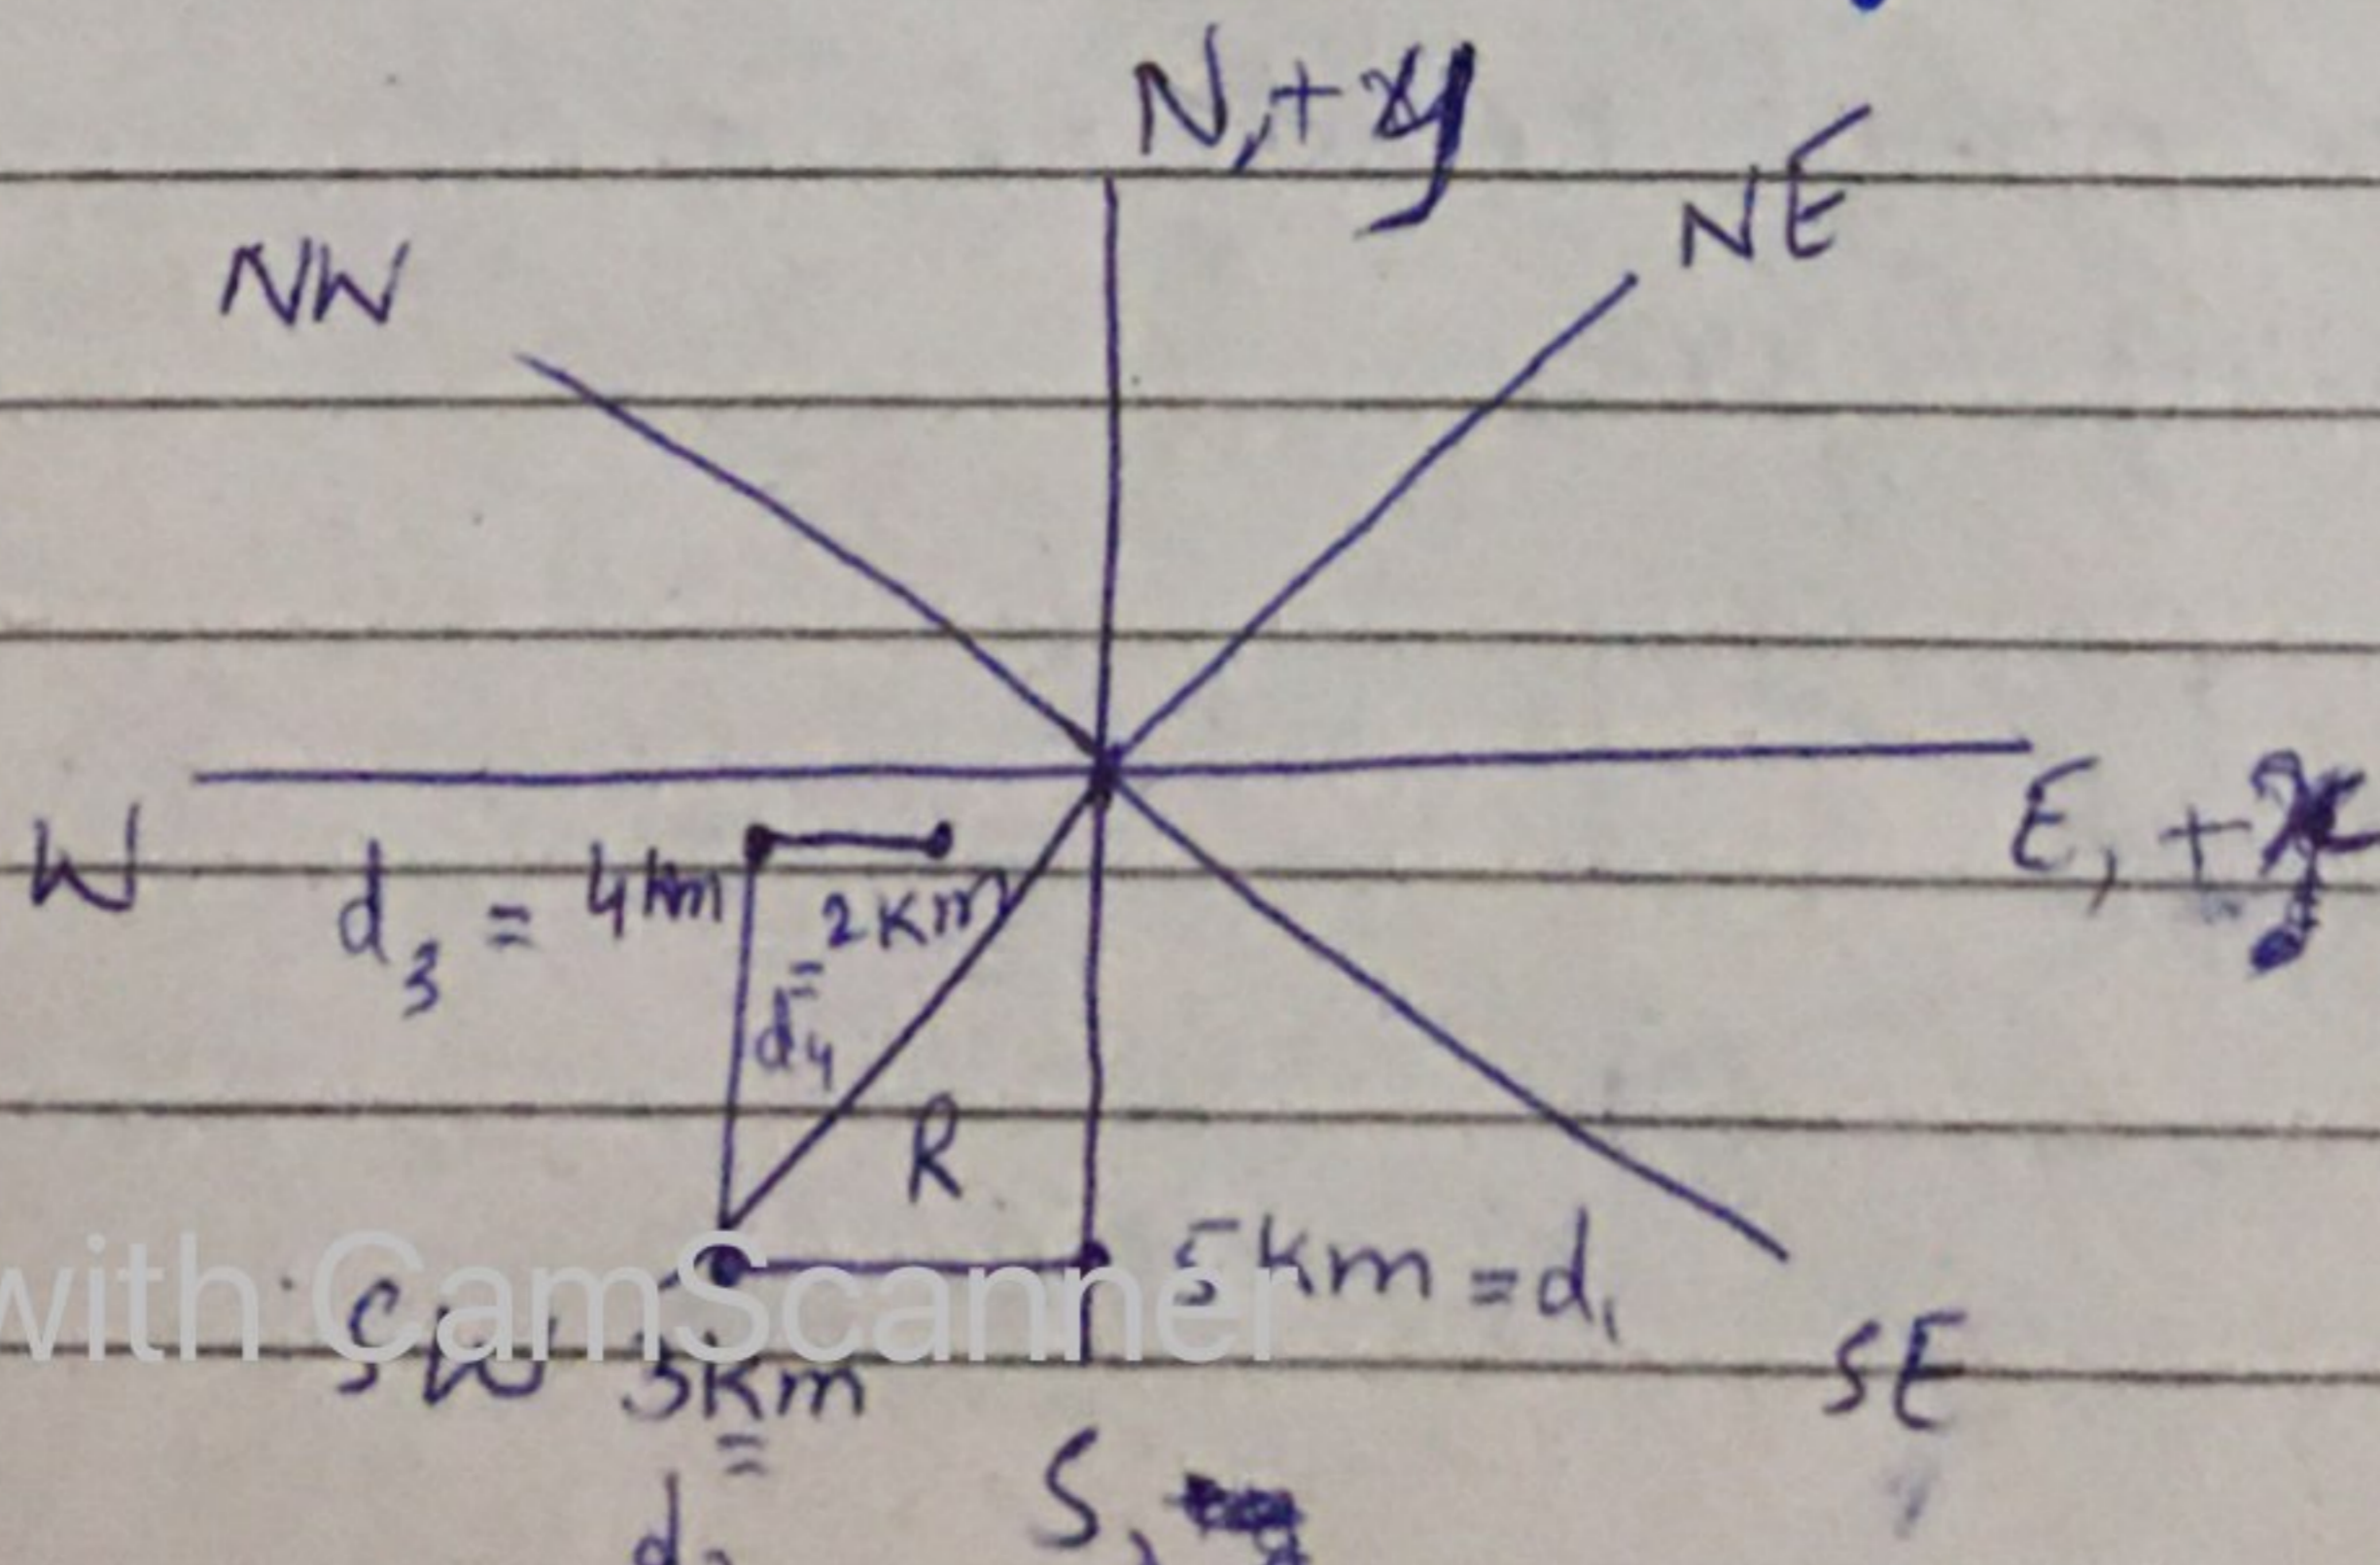 N, + y
NE
NW
W
E, + x
d3 = 4km
2km
=
d4
R
5km = d1
with CamScanner
SW
3km
=
d2
SE
S,